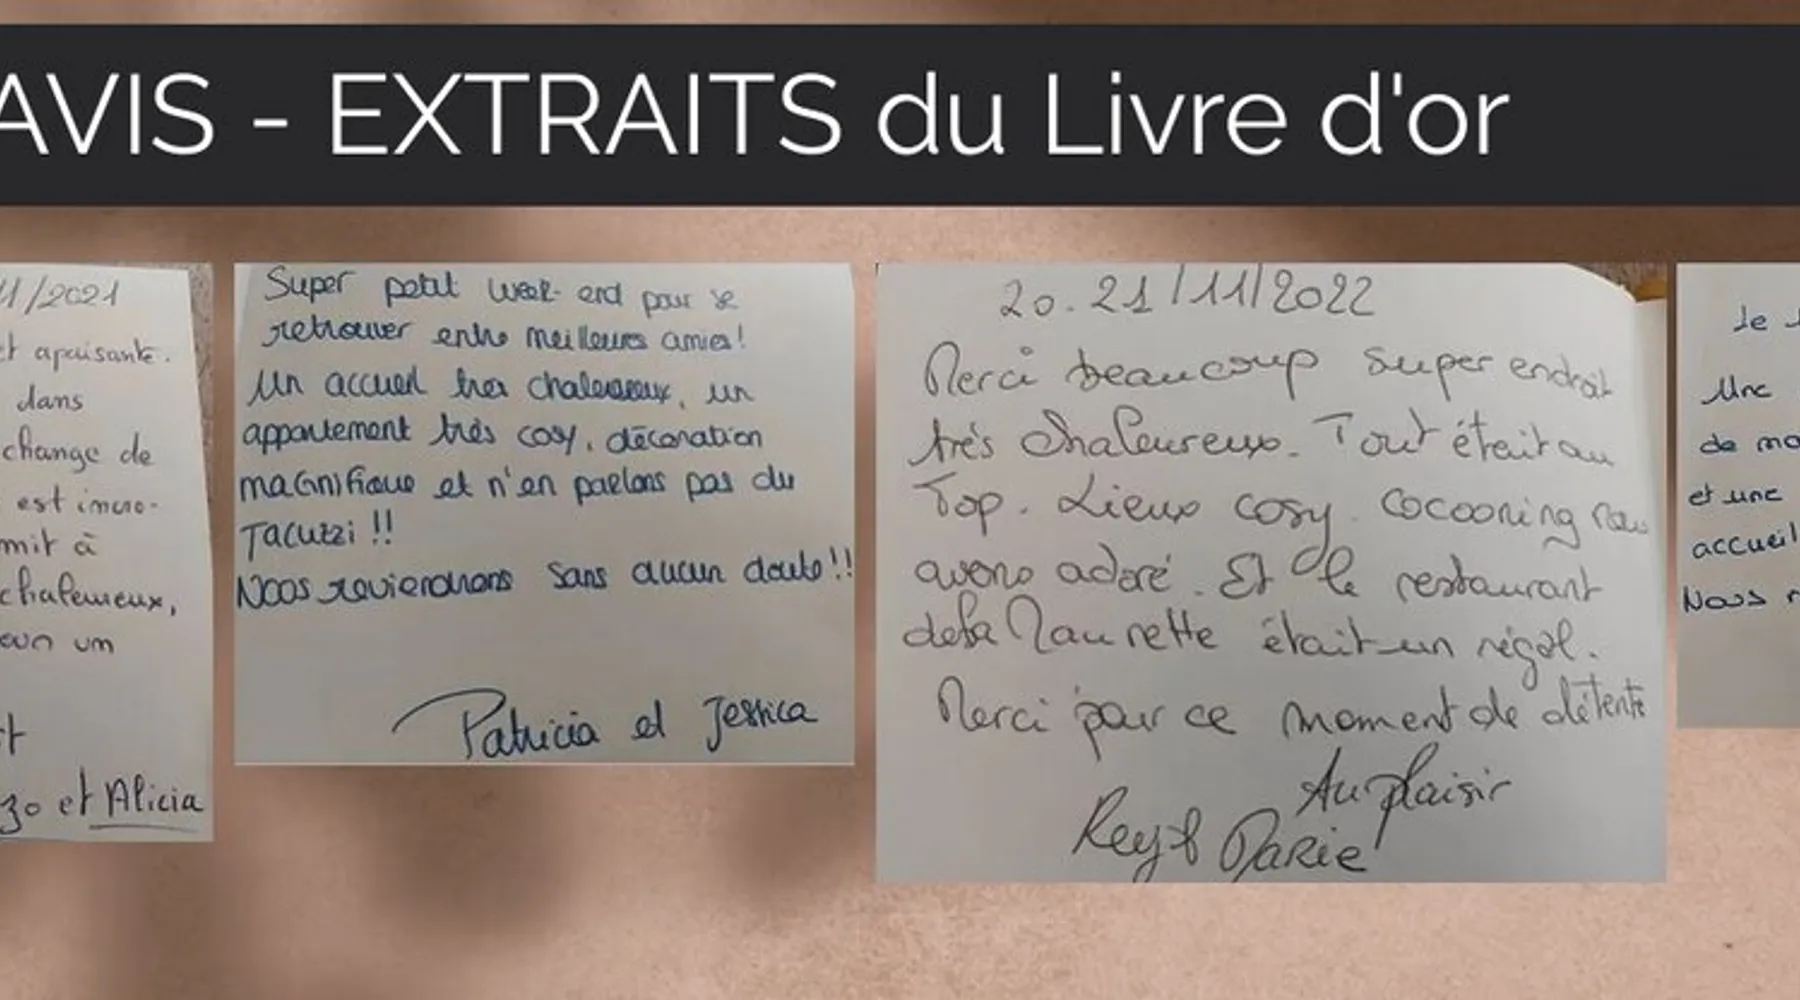 AVIS - EXTRAITS du Livre d'or
11/2021
et apaisante.
dans
change de
est incro-
mit à
chaleureux,
um
et Alicia
Super petit week-end pour se
retrouver entre meilleures amies!
Un accueil très chaleureux, un
appartement très cosy, décoration
magnifique et n'en parlons pas du
Jacuzzi !!
Nous reviendrons sans aucun doute!!
Patricia et Jessica
20.21/11/2022
Merci beaucoup super endroit
très chaleureux. Tout était au
Top. Lieux cosy. Cocooning nous
avons adoré. Et le restaurant
était un régal.
Merci pour ce moment de détente
Au plaisir
Marie
Une
et une
accueil
Nous